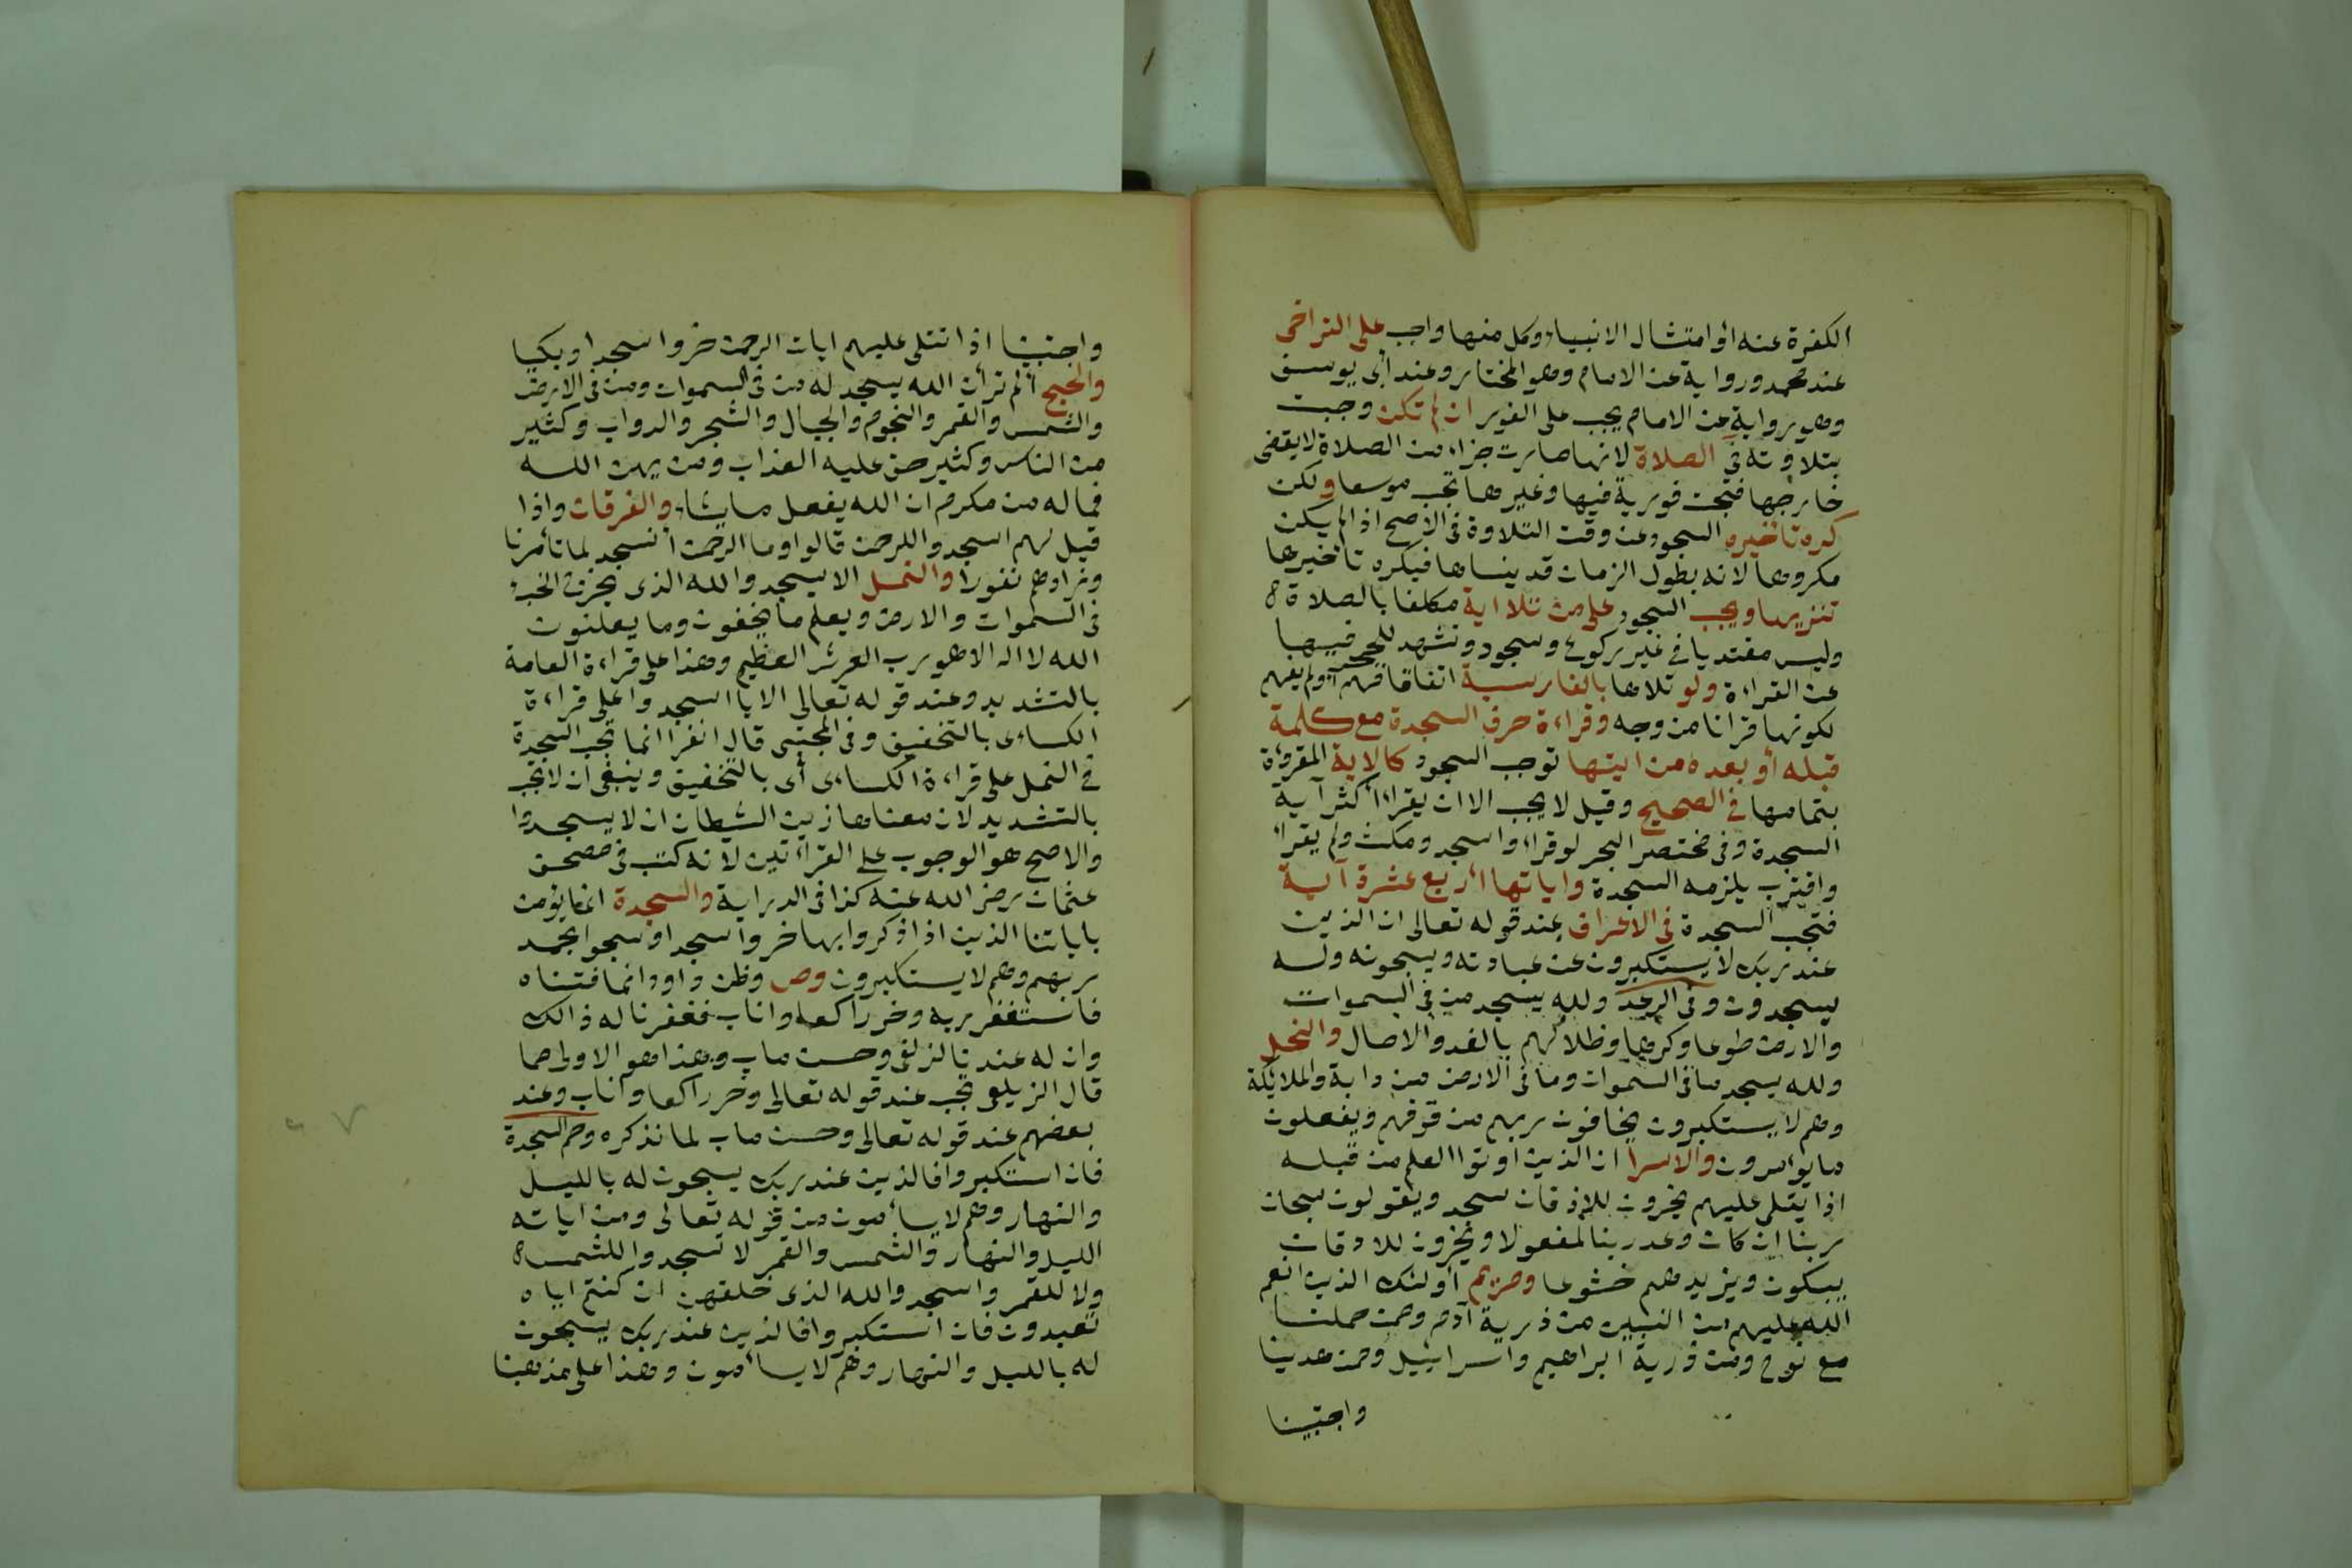 الكفرة عنه أو امتثال الانبياء وكل منها واجب على التراخى
عند محمد ورواية عن الامام وهو المختار وعند أبى يوسف
وهو رواية عن الامام يجب على الفور ان لم تكن وجبت
بتلاوته فى الصلاة لانها صارت جزاء من الصلاة لا يقضى
خارجها فتجب فورية فيها وغيرها تجب موسعا ولكن
كره تأخيره السجود عن وقت التلاوة فى الاصح اذا لم يكن
مكروها لانه بطول الزمان قد ينساها فيكره تاخيرها
تنزيها ويجب السجود على من تلا اية مكلفا بالصلاة
وليس مقتديا فى غير ركوع وسجود وتشهد للحجر فيها
عن القراءة ولو تلاها بالفارسية اتفاقا فهم أو لم يفهم
لكونها قرانا من وجه وقراءة حرف السجدة مع كلمة
قبله أو بعده من ايتها توجب السجود كالاية المقروءة
بتمامها فى الصحيح وقيل لا يجب الا ان يقراء أكثر آية
السجدة وفى مختصر البحر لو قراء واسجد ومكث ولم يقرأ
واقترب يلزمه السجدة واياتها أربع عشرة آية
فتجب السجدة فى الاعراف عند قوله تعالى ان الذين
عند ربك لا يستكبرون عن عبادته ويسبحونه وله
يسجدون وفى الرعد ولله يسجد من فى السموات
والارض طوعا وكرها وظلالهم بالغدو والاصال والنحل
ولله يسجد ما فى السموات وما فى الارض من دابة والملائكة
وهم لا يستكبرون يخافون ربهم من فوقهم ويفعلون
ما يؤمرون والاسرا ان الذين اوتوا العلم من قبله
اذا يتلى عليهم يخرون للاذقان سجدا ويقولون سبحان
ربنا ان كان وعد ربنا لمفعولا ويخرون للاذقان
يبكون ويزيدهم خشوعا ومريم أولئك الذين انعم
الله عليهم من النبيين من ذرية آدم وممن حملنا
مع نوح ومن ذرية ابراهيم واسراييل وممن هدينا
واجتبينا
واجتبينا اذا تتلى عليهم ايات الرحمن خروا سجدا وبكيا
والحج ألم تر أن الله يسجد له من فى السموات ومن فى الارض
والشمس والقمر والنجوم والجبال والشجر والدواب وكثير
من الناس وكثير حق عليه العذاب ومن يهن الله
فما له من مكرم ان الله يفعل ما يشاء والفرقان واذا
قيل لهم اسجدوا للرحمن قالوا وما الرحمن أنسجد لما تأمرنا
وزادهم نفورا والنمل الا يسجدوا لله الذى يخرج الخبء
فى السموات والارض ويعلم ما يخفون وما يعلنون
الله لا اله الا هو رب العرش العظيم وهذا على قراءة العامة
بالتشديد وعند قوله تعالى الا يا اسجدوا على قراءة
الكساءى بالتخفيف وفى المجتبى قال الفرا انما تجب السجدة
فى النمل على قراءة الكساءى أى بالتخفيف وينبغى ان لا تجب
بالتشديد لان معناها زين الشيطان ان لا يسجدوا
والاصح هو الوجوب على القراءتين لانه كتب فى مصحف
عثمان رضى الله عنه كذا فى الدراية والسجدة انما يؤمن
باياتنا الذين اذا ذكروا بها خروا سجدا وسبحوا بحمد
ربهم وهم لا يستكبرون وص وظن داود انما فتناه
فاستغفر ربه وخر راكعا واناب فغفرنا له ذالك
وان له عندنا لزلفى وحسن ماب وهذا هو الاولى مما
قال الزيلعى تجب عند قوله تعالى وخر راكعا واناب وعند
بعضهم عند قوله تعالى وحسن ماب لما نذكره وحم السجدة
فان استكبروا فالذين عند ربك يسبحون له بالليل
والنهار وهم لا يسأمون من قوله تعالى ومن اياته
الليل والنهار والشمس والقمر لا تسجدوا للشمس
ولا للقمر واسجدوا لله الذى خلقهن ان كنتم اياه
تعبدون فان استكبروا فالذين عند ربك يسبحون
له بالليل والنهار وهم لا يسأمون وهذا على مذهبنا